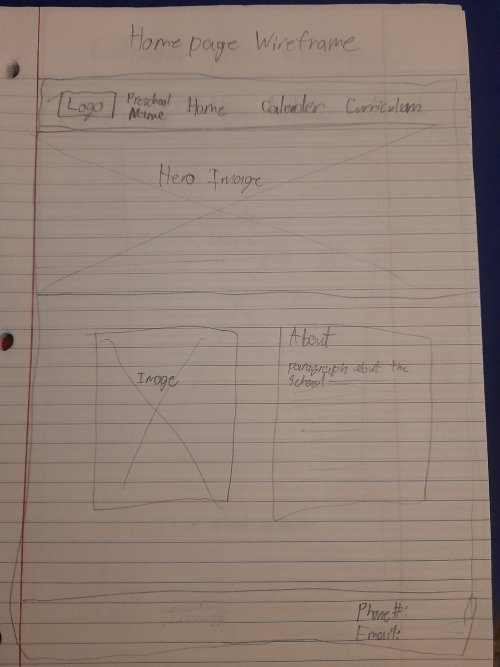 Homepage Wireframe
Logo Preschool Name Home Calender Curriculum
Hero Image
Image
About
paragraph about the
school
Phone#:
Email: